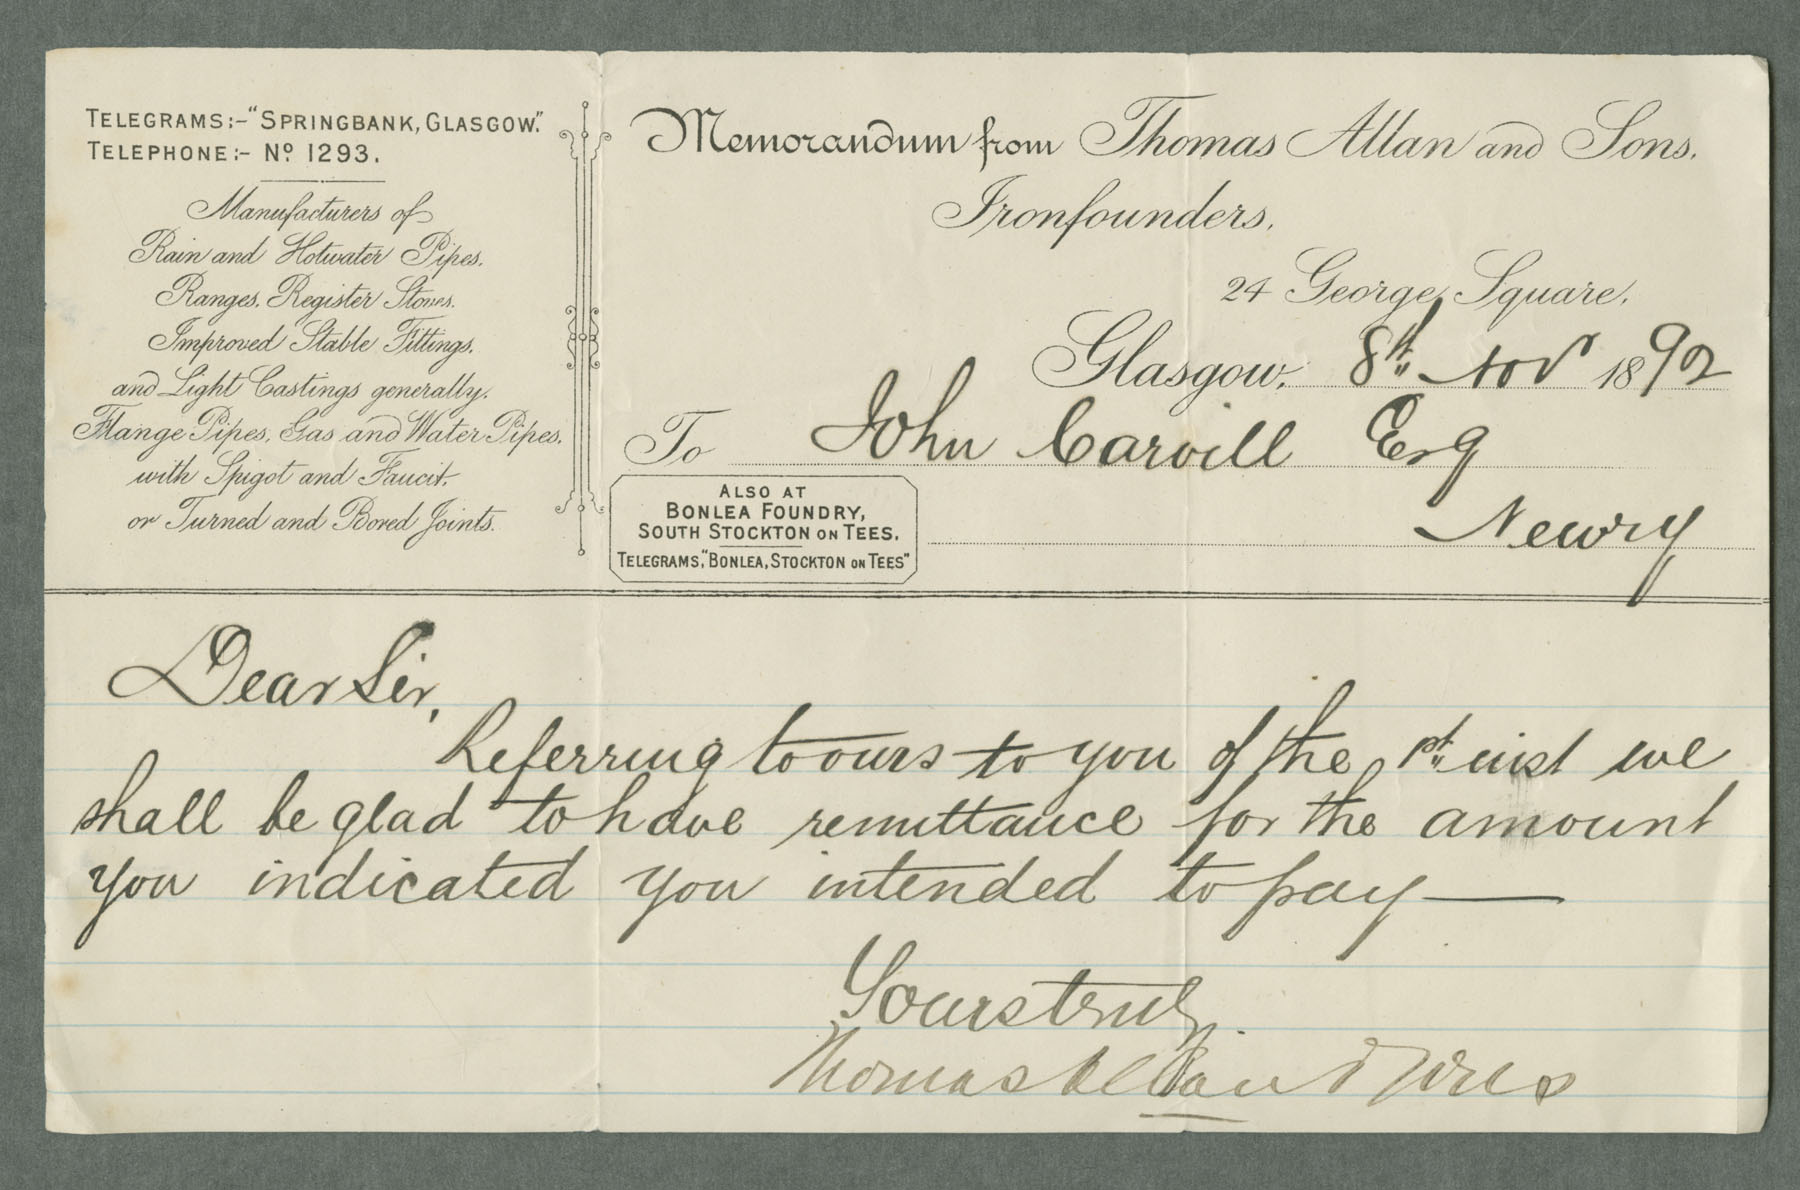 TELEGRAMS:- "SPRINGBANK, GLASGOW."
TELEPHONE:- No 1293.
Manufacturers of
Rain and Hotwater Pipes.
Ranges. Register Stoves.
Improved Stable Fittings.
and Light Castings generally.
Flange Pipes, Gas and Water Pipes.
with Spigot and Faucit.
or Turned and Bored Joints.
Memorandum from Thomas Allan and Sons.
Ironfounders.
24 George Square.
Glasgow. 8th Nov 1892
To John Carvill Esq
Newry
ALSO AT
BONLEA FOUNDRY,
SOUTH STOCKTON ON TEES.
TELEGRAMS, "BONLEA, STOCKTON ON TEES"
Dear Sir,
Referring to ours to you of the 1st inst we
shall be glad to have remittance for the amount
you indicated you intended to pay—
Yours truly
Thomas Allan & Sons